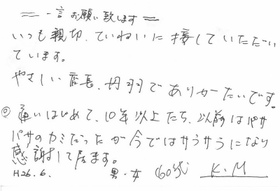 一言お願い致します
いつも親切、ていねいに接していただい
ています。
やさしい店長、丹羽でありがたいです。
◎通いはじめて、10年以上たち、以前はパサ
パサのカミだったが今ではサラサラになり
感謝して居ます。
H26.6. 男・女 60代 K.M